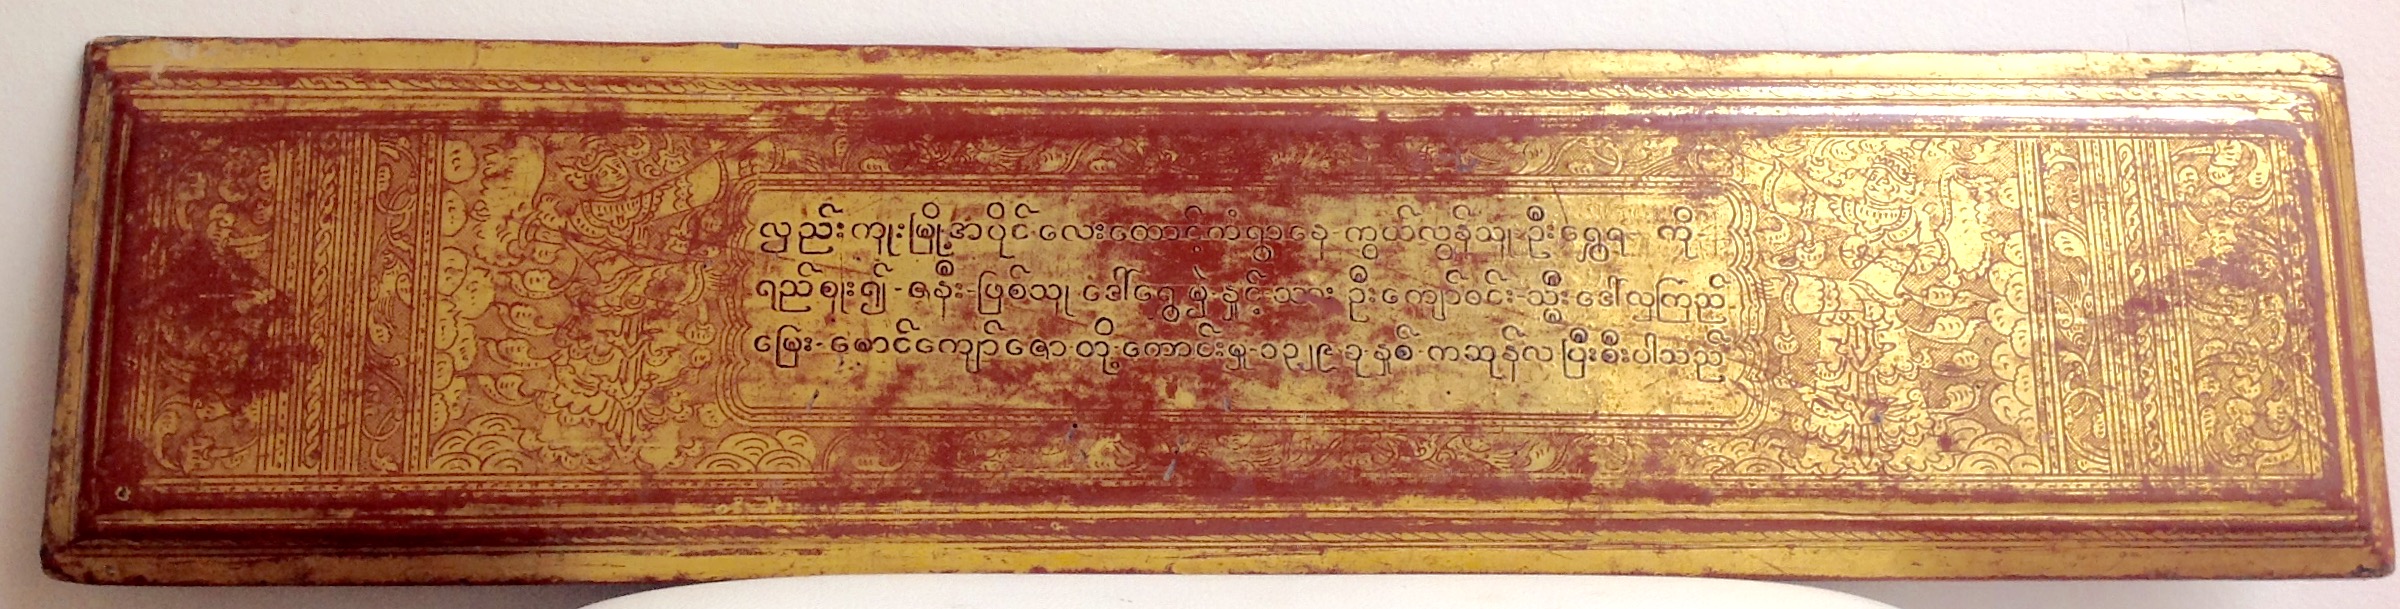 လှည်းကူးမြို့အပိုင်-လေးထောင့်ကံရွာနေ-ကွယ်လွန်သူ-ဦးရွှေရ- ကို-
ရည်စူး၍-ဇနီး-ဖြစ်သူ ဒေါ်ရွှေမှဲ-နှင့်-သား ဦးကျော်ဝင်း-သ္မီးဒေါ်လှကြည်
မြေး-မောင်ကျော်ဇော-တို့-ကောင်းမှု-၁၃၂၉-ခုနှစ်-ကဆုန်လ ပြီးစီးပါသည်